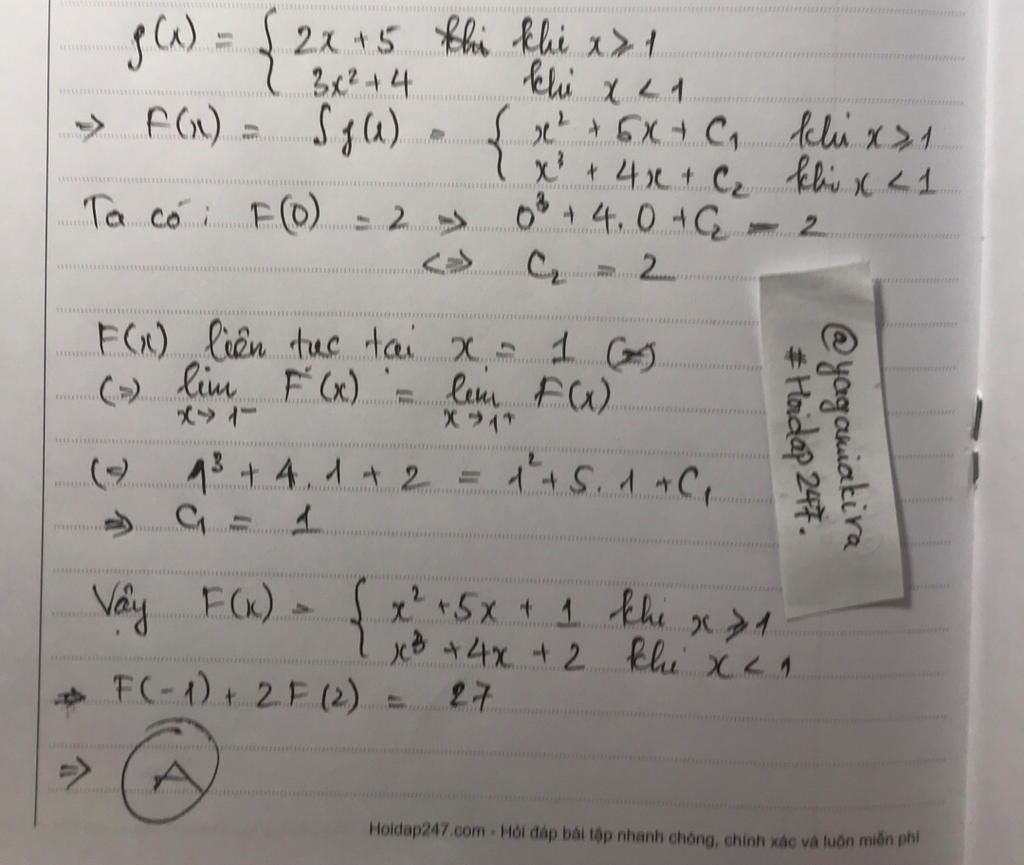 f(x) = { 2x + 5 khi khi x ≥ 1
3x² + 4 khi x < 1
⇒ F(x) = ∫f(x) = { x² + 5x + C₁ khi x ≥ 1
x³ + 4x + C₂ khi x < 1
Ta có: F(0) = 2 ⇒ 0³ + 4.0 + C₂ = 2
⇔ C₂ = 2
F(x) liên tục tại x = 1
(=) lim F(x) = lim F(x)
x→1⁻ x→1⁺
(=) 1³ + 4.1 + 2 = 1² + 5.1 + C₁
⇒ C₁ = 1
Vậy F(x) = { x² + 5x + 1 khi x ≥ 1
x³ + 4x + 2 khi x < 1
⇒ F(-1) + 2F(2) = 27
⇒ A
@yagamiakira
#Hoidap247.
Hoidap247.com - Hỏi đáp bài tập nhanh chóng, chính xác và luôn miễn phí